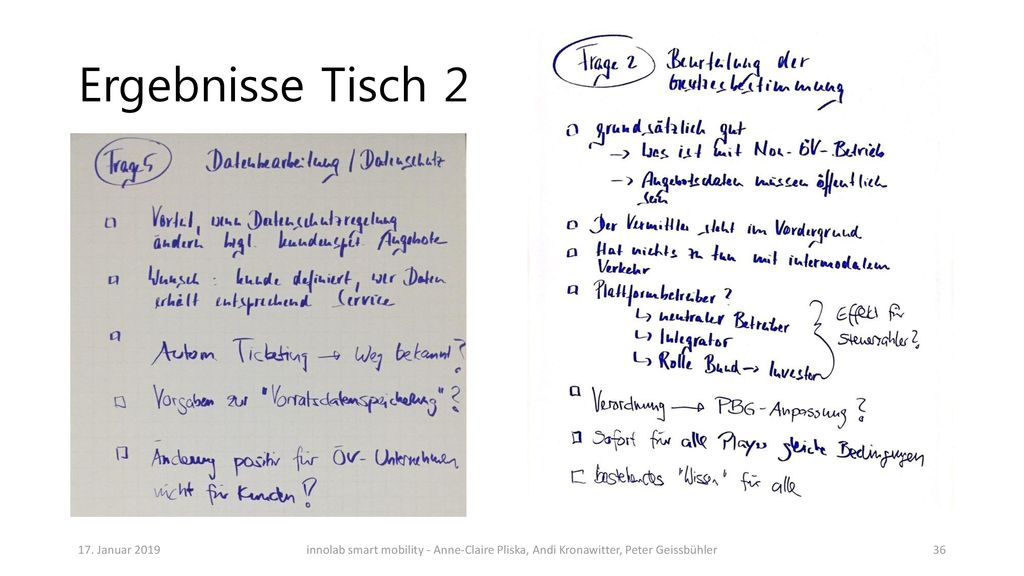 Ergebnisse Tisch 2
Frage 5 Datenbearbeitung / Datenschutz
Vorteil, wenn Datenschutzregelung
ändern bzgl. kundenspez. Angebote
Wunsch : kunde definiert, wer Daten
erhält entsprechend Service
Autom. Ticketing → Weg bekannt?
Vorgaben zur "Vorratsdatenspeicherung"?
Änderung positiv für ÖV-Unternehmen
nicht für Kunden!
Frage 2 Beurteilung der
Gesetzesbestimmung
grundsätzlich gut
→ Was ist mit Non-ÖV-Betrieb
→ Angebotsdaten müssen öffentlich
sein
Der Vermittler steht im Vordergrund
Hat nichts zu tun mit intermodalem
Verkehr
Plattformbetreiber?
↳ neutraler Betreiber
↳ Integrator
↳ Rolle Bund → Investor
Effekt für
Steuerzahler?
Verordnung → PBG-Anpassung?
Sofort für alle Player gleiche Bedingungen
bestehendes "Wissen" für alle
17. Januar 2019
innolab smart mobility - Anne-Claire Pliska, Andi Kronawitter, Peter Geissbühler
36